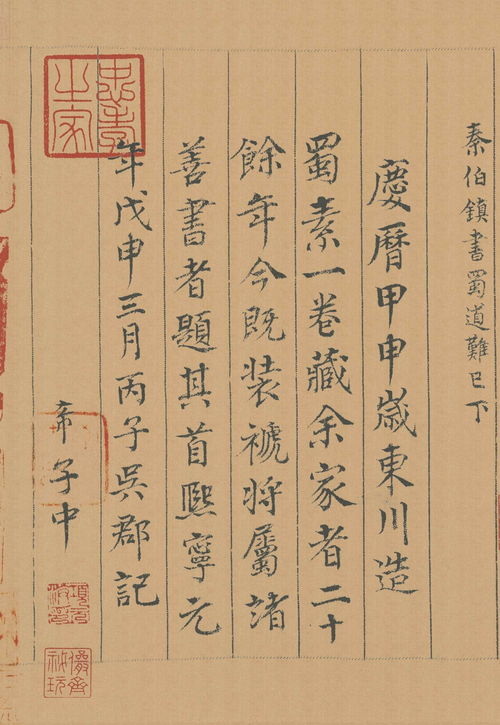 秦伯鎮書蜀道難已下
慶曆甲申歲東川造
蜀素一卷藏余家者二十
餘年今既装褫將屬諸
善書者題其首熙寧元
年戊申三月丙子吳郡記
子中
忠孝之家